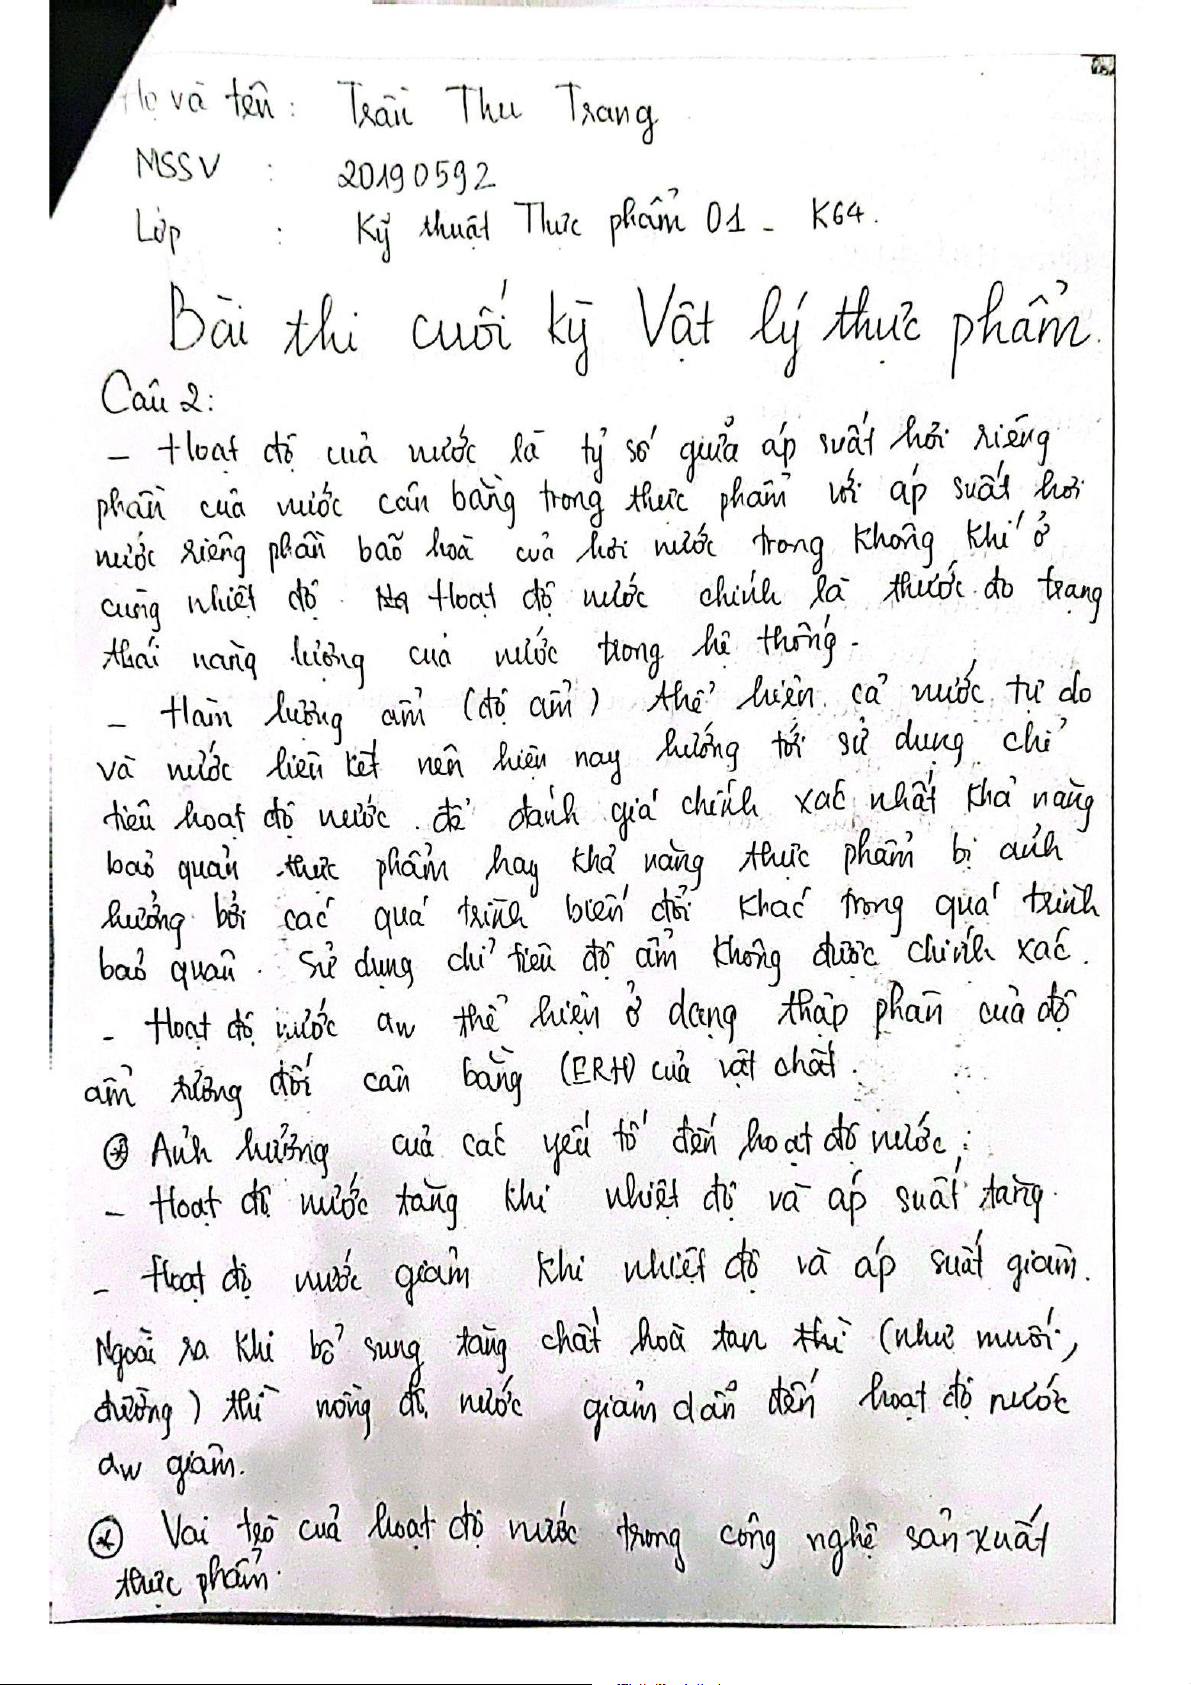 Họ và tên : Trần Thu Trang
MSSV : 20190592
Lớp : Kỹ thuật Thực phẩm 01 - K64.
Bài thi cuối kỳ Vật lý thực phẩm.
Câu 2:
- Hoạt độ của nước là tỷ số giữa áp suất hơi riêng
phần của nước cân bằng trong thực phẩm với áp suất hơi
nước riêng phần bão hoà của hơi nước trong không khí ở
cùng nhiệt độ. Hoạt độ nước chính là thước đo trạng
thái năng lượng của nước trong hệ thống.
- Hàm lượng ẩm (độ ẩm) thể hiện cả nước tự do
và nước liên kết nên hiện nay hướng tới sử dụng chỉ
tiêu hoạt độ nước để đánh giá chính xác nhất khả năng
bảo quản thực phẩm hay khả năng thực phẩm bị ảnh
hưởng bởi các quá trình biến đổi khác trong quá trình
bảo quản. Sử dụng chỉ tiêu độ ẩm không được chính xác.
- Hoạt độ nước aw thể hiện ở dạng thập phân của độ
ẩm tương đối cân bằng (ERH) của vật chất.
⊛ Ảnh hưởng của các yếu tố đến hoạt độ nước:
- Hoạt độ nước tăng khi nhiệt độ và áp suất tăng.
- Hoạt độ nước giảm khi nhiệt độ và áp suất giảm.
Ngoài ra khi bổ sung tăng chất hoà tan thì (như muối,
đường) thì nồng độ nước giảm dẫn đến hoạt độ nước
aw giảm.
⊛ Vai trò của hoạt độ nước trong công nghệ sản xuất
thực phẩm.